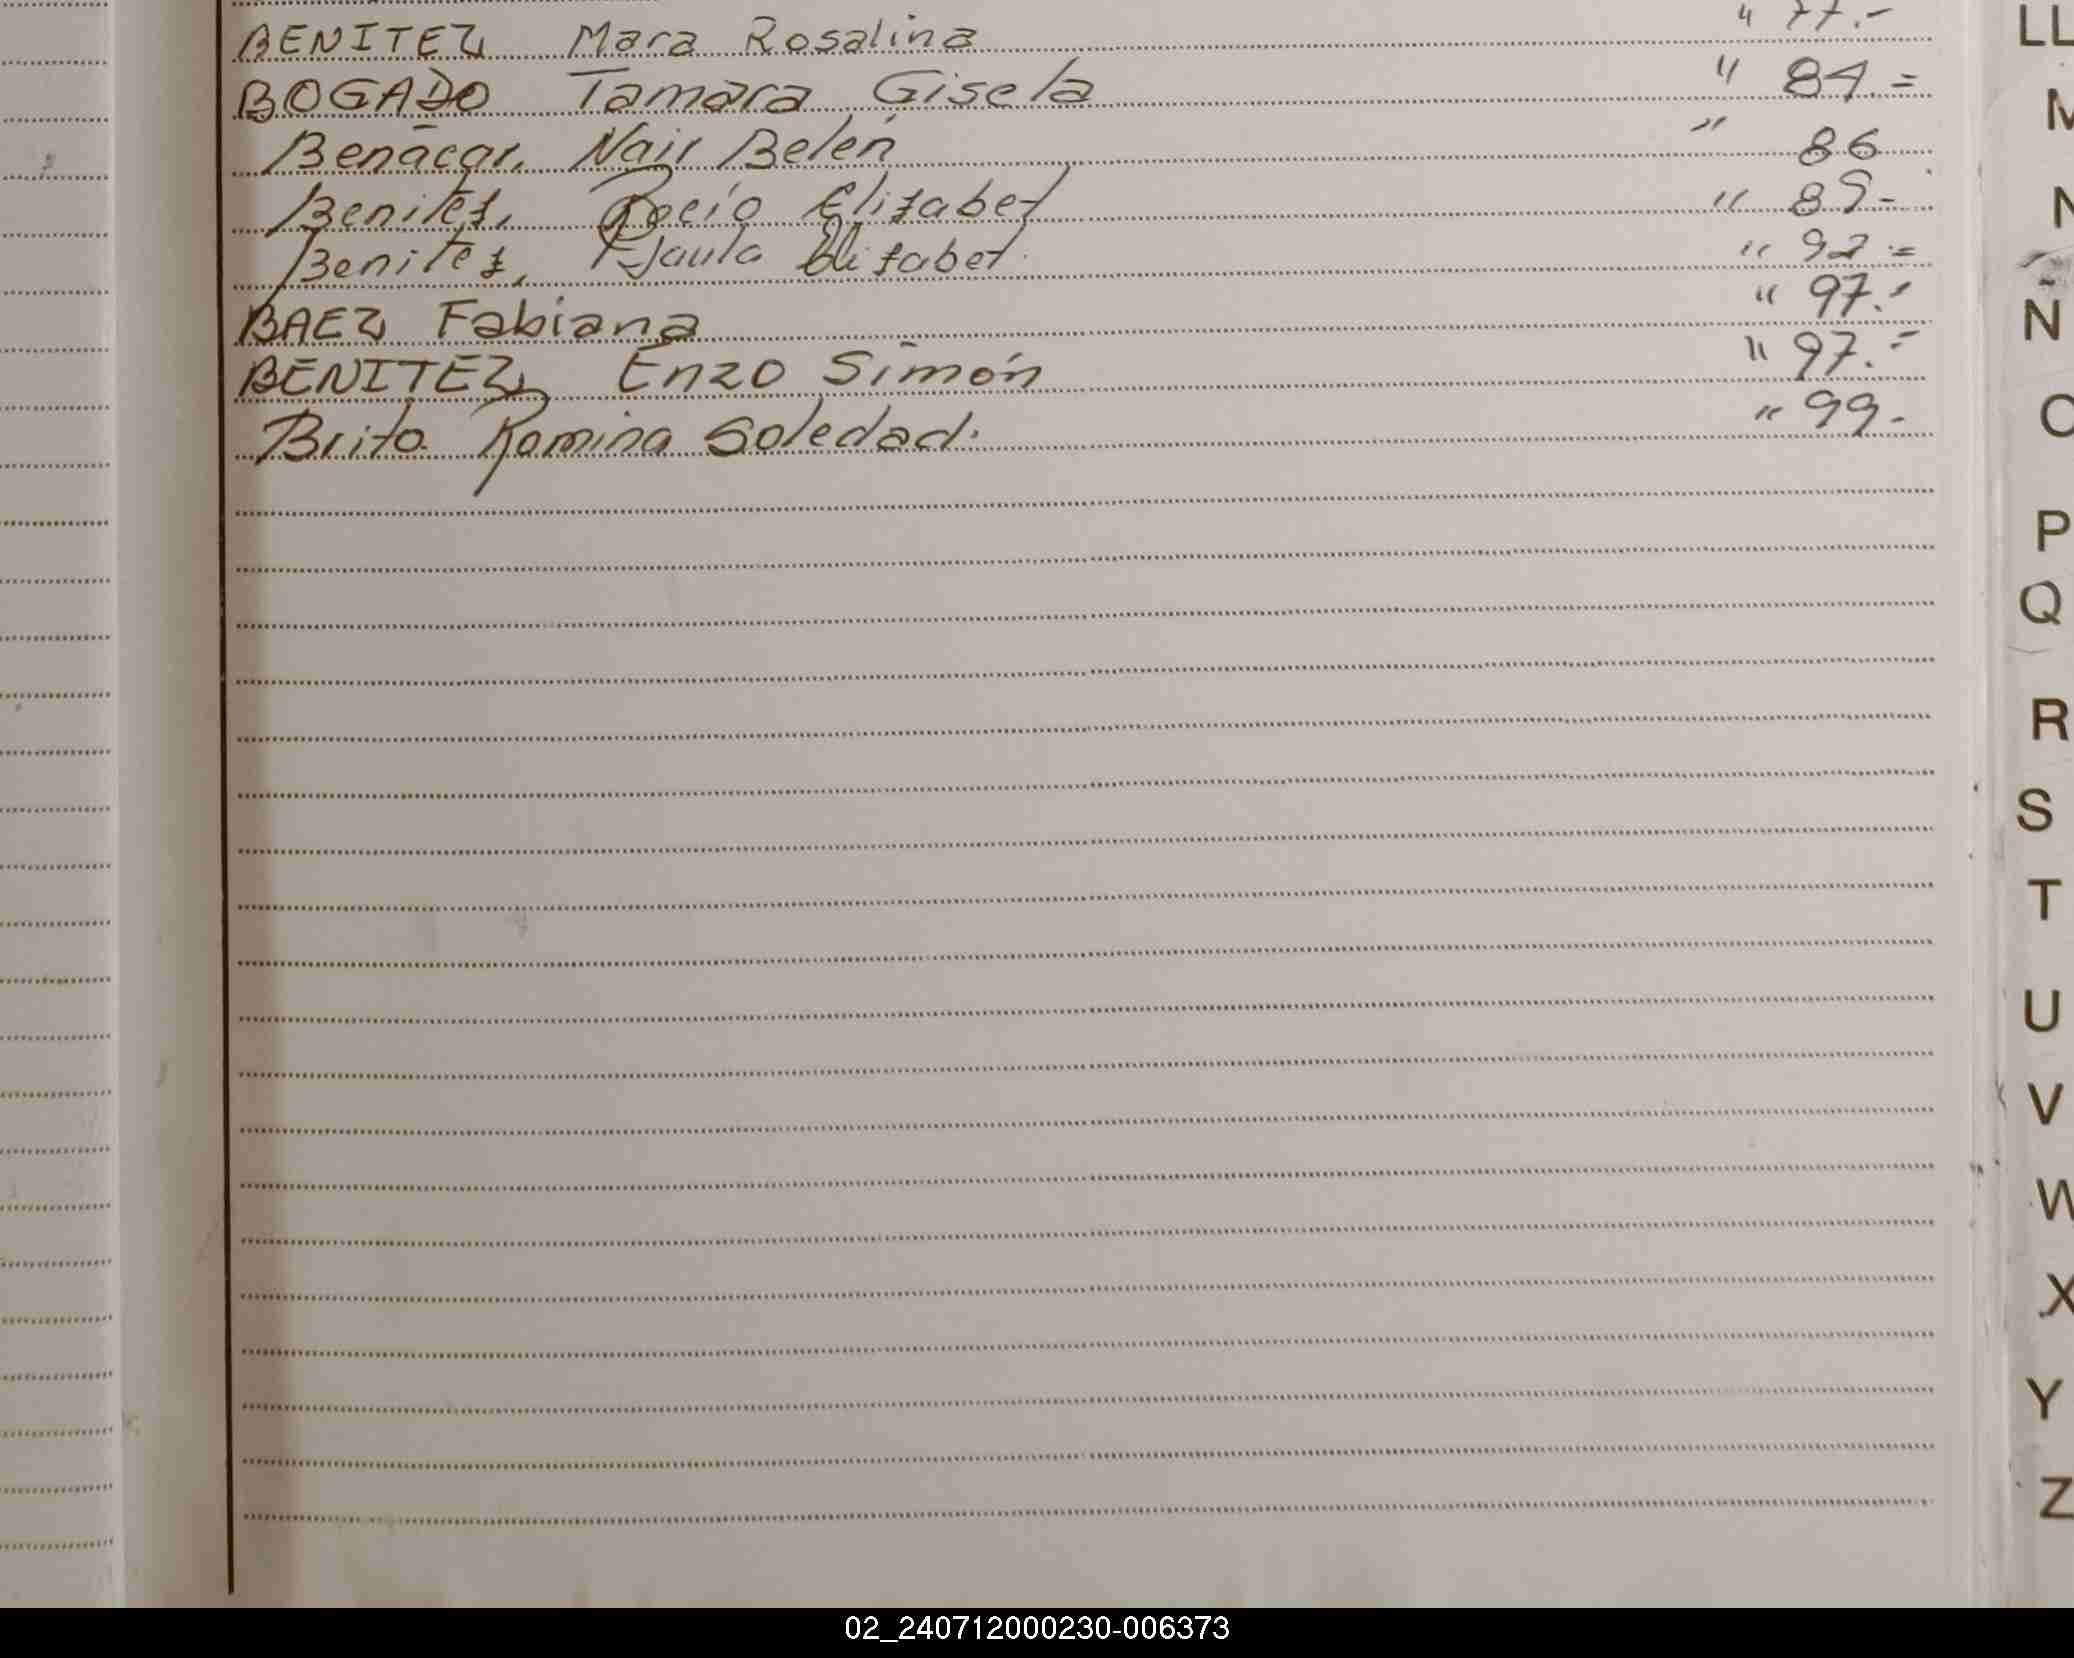 BENITEZ Mara Rosalina " 77.-
BOGADO Tamara Gisela " 84.=
Benacar, Nair Belén " 86
Benitez, Rocío Elizabet " 89-
Benitez, Paula Elizabet " 92.=
BAEZ Fabiana " 97.-
BENITEZ Enzo Simón " 97.=
Brito Romina Soledad. " 99.-
LL
M
N
Ñ
O
P
Q
R
S
T
U
V
W
X
Y
Z
02_240712000230-006373